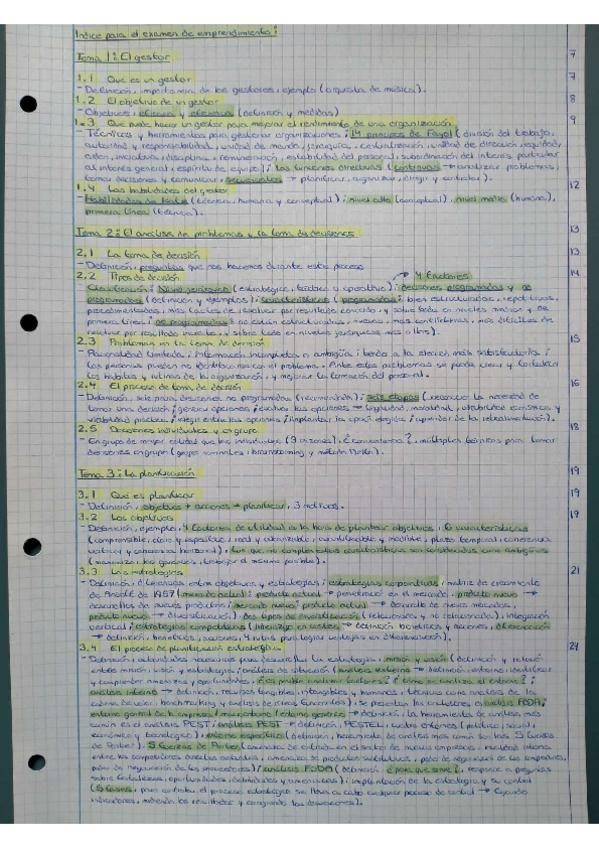 Indice para el examen de emprendimiento:
Tema 1: El gestor 7
1.1 Que es un gestor 7
- Definición, importancia de los gestores, ejemplo (orquesta de música).
1.2 El objetivo de un gestor 8
- Objetivos, eficacia y eficiencia (definición y medidas)
1.3 Que puede hacer un gestor para mejorar el rendimiento de una organización 9
- Técnicas y herramientas para gestionar organizaciones; 14 principios de Fayol (división del trabajo,
autoridad y responsabilidad, unidad de mando, jerarquía, centralización, unidad de dirección, equidad,
orden, iniciativa, disciplina, remuneración, estabilidad del personal, subordinación del interés particular
al interés general, espíritu de equipo); las funciones directivas (continuas → analizar problemas,
tomar decisiones y comunicar, secuenciales → planificar, organizar, dirigir y controlar).
1.4 Las habilidades del gestor 12
- Habilidades de (técnica, humana y conceptual); nivel alto (conceptual), nivel medio (humana),
primera línea (técnica).
Tema 2: El análisis de problemas y la toma de decisiones 13
2.1 La toma de decisión 13
- Definición, preguntas que nos hacemos durante este proceso
2.2 Tipos de decisión → 4 factores 14
Clasificación: Nivel jerárquico (estratégica, táctica o operativa); decisiones programadas y no
programadas (definición y ejemplos); características (programadas: bien estructuradas, repetitivas,
procedimentadas, más fáciles de resolver por resultado conocido, y sobre todo en niveles medios y de
primera línea; no programadas: no están estructuradas, nuevas, más más difíciles de
resolver por resultado incierto y sobre todo en niveles jerárquicos más altos).
2.3 Problemas en la toma de decisión 15
- Racionalidad limitada; información incompleta o ambigua; llevan a la elección más satisfactoria;
las personas pueden no identificarse con el problema. Ante estos problemas se puede crear y fortalecer
los hábitos y rutinas de la organización, y mejorar la formación del personal.
2.4 El proceso de toma de decisión 16
- Definición, solo para decisiones no programadas (recomendado); seis etapas (reconocer la necesidad de
tomar una decisión; generar opciones; evaluar las opciones → legalidad, moralidad, viabilidad económica y
viabilidad práctica; elegir entre las opciones; implantar la opción elegida; aprender de la retroalimentación).
2.5 Decisiones individuales y en grupo 18
- En grupo de mayor calidad que las individuales (3 razones), ¿conveniente?, múltiples técnicas para tomar
decisiones en grupo (grupos nominales, brainstorming y método Delfi).
Tema 3: La planificación 19
3.1 Qué es planificar 19
- Definición, objetivos + acciones → planificar, 3 motivos.
3.2 Los objetivos 19
- Definición, ejemplos, 4 factores de utilidad a la hora de plantear objetivos; 6 características
(comprensible, claro y específico; real y alcanzable; cuantificable y medible; plazo temporal; coherencia
vertical y coherencia horizontal); los que no cumplen estas características son considerados como ambiguos
(maximizar las ganancias, trabajar el máximo posible).
3.3 Las estrategias 21
- Definición, diferencias entre objetivos y estrategias; estrategias corporativas; matriz de crecimiento
de Ansoff de 1957 (mercado actual: producto actual → penetración en el mercado, producto nuevo →
desarrollo de nuevos productos; mercado nuevo: producto actual → desarrollo de nuevos mercados,
producto nuevo → diversificación); dos tipos de diversificación (relacionados y no relacionados), integración
vertical; estrategias competitivas (liderazgo en costes → definición, beneficios y acciones, diferenciación
→ definición, beneficios, acciones, 4 rutas para lograr ventajas en diferenciación).
3.4 El proceso de planificación estratégica 24
- Definición, actividades necesarias para desarrollar la estrategia, misión y visión (definición y relación
entre misión, visión y estrategia); análisis de situación (análisis externo → definición, entorno, identificar
y comprender amenazas y oportunidades, ¿es posible analizar factores?, ¿cómo se analiza el entorno?;
análisis interno → definición, recursos tangibles, intangibles y humanos, técnicas como análisis de la
cadena de valor, benchmarking y análisis de ratios financieros), se presentan las conclusiones en análisis FODA;
entorno general de la empresa/macroentorno/entorno genérico → definición, la herramienta de análisis más
común es el análisis PEST; análisis PEST → definición, PESTEL, cuatro entornos (político, social,
económico y tecnológico); entorno específico (definición, herramienta de análisis más común son las 5 fuerzas
de Porter), 5 fuerzas de Porter (amenaza de entrada en el sector de nuevas empresas, rivalidad interna
entre los competidores directos existentes, amenaza de productos substitutivos, poder de negociación de los compradores,
poder de negociación de los proveedores); análisis FODA (definición, ¿para qué sirve?, respuesta a preguntas
sobre fortalezas, oportunidades, debilidades y amenazas); implementación de la estrategia y su control
(3 fases, para controlar el proceso estratégico se lleva a cabo cualquier proceso de control → fijando
indicadores, midiendo los resultados y corrigiendo las desviaciones).